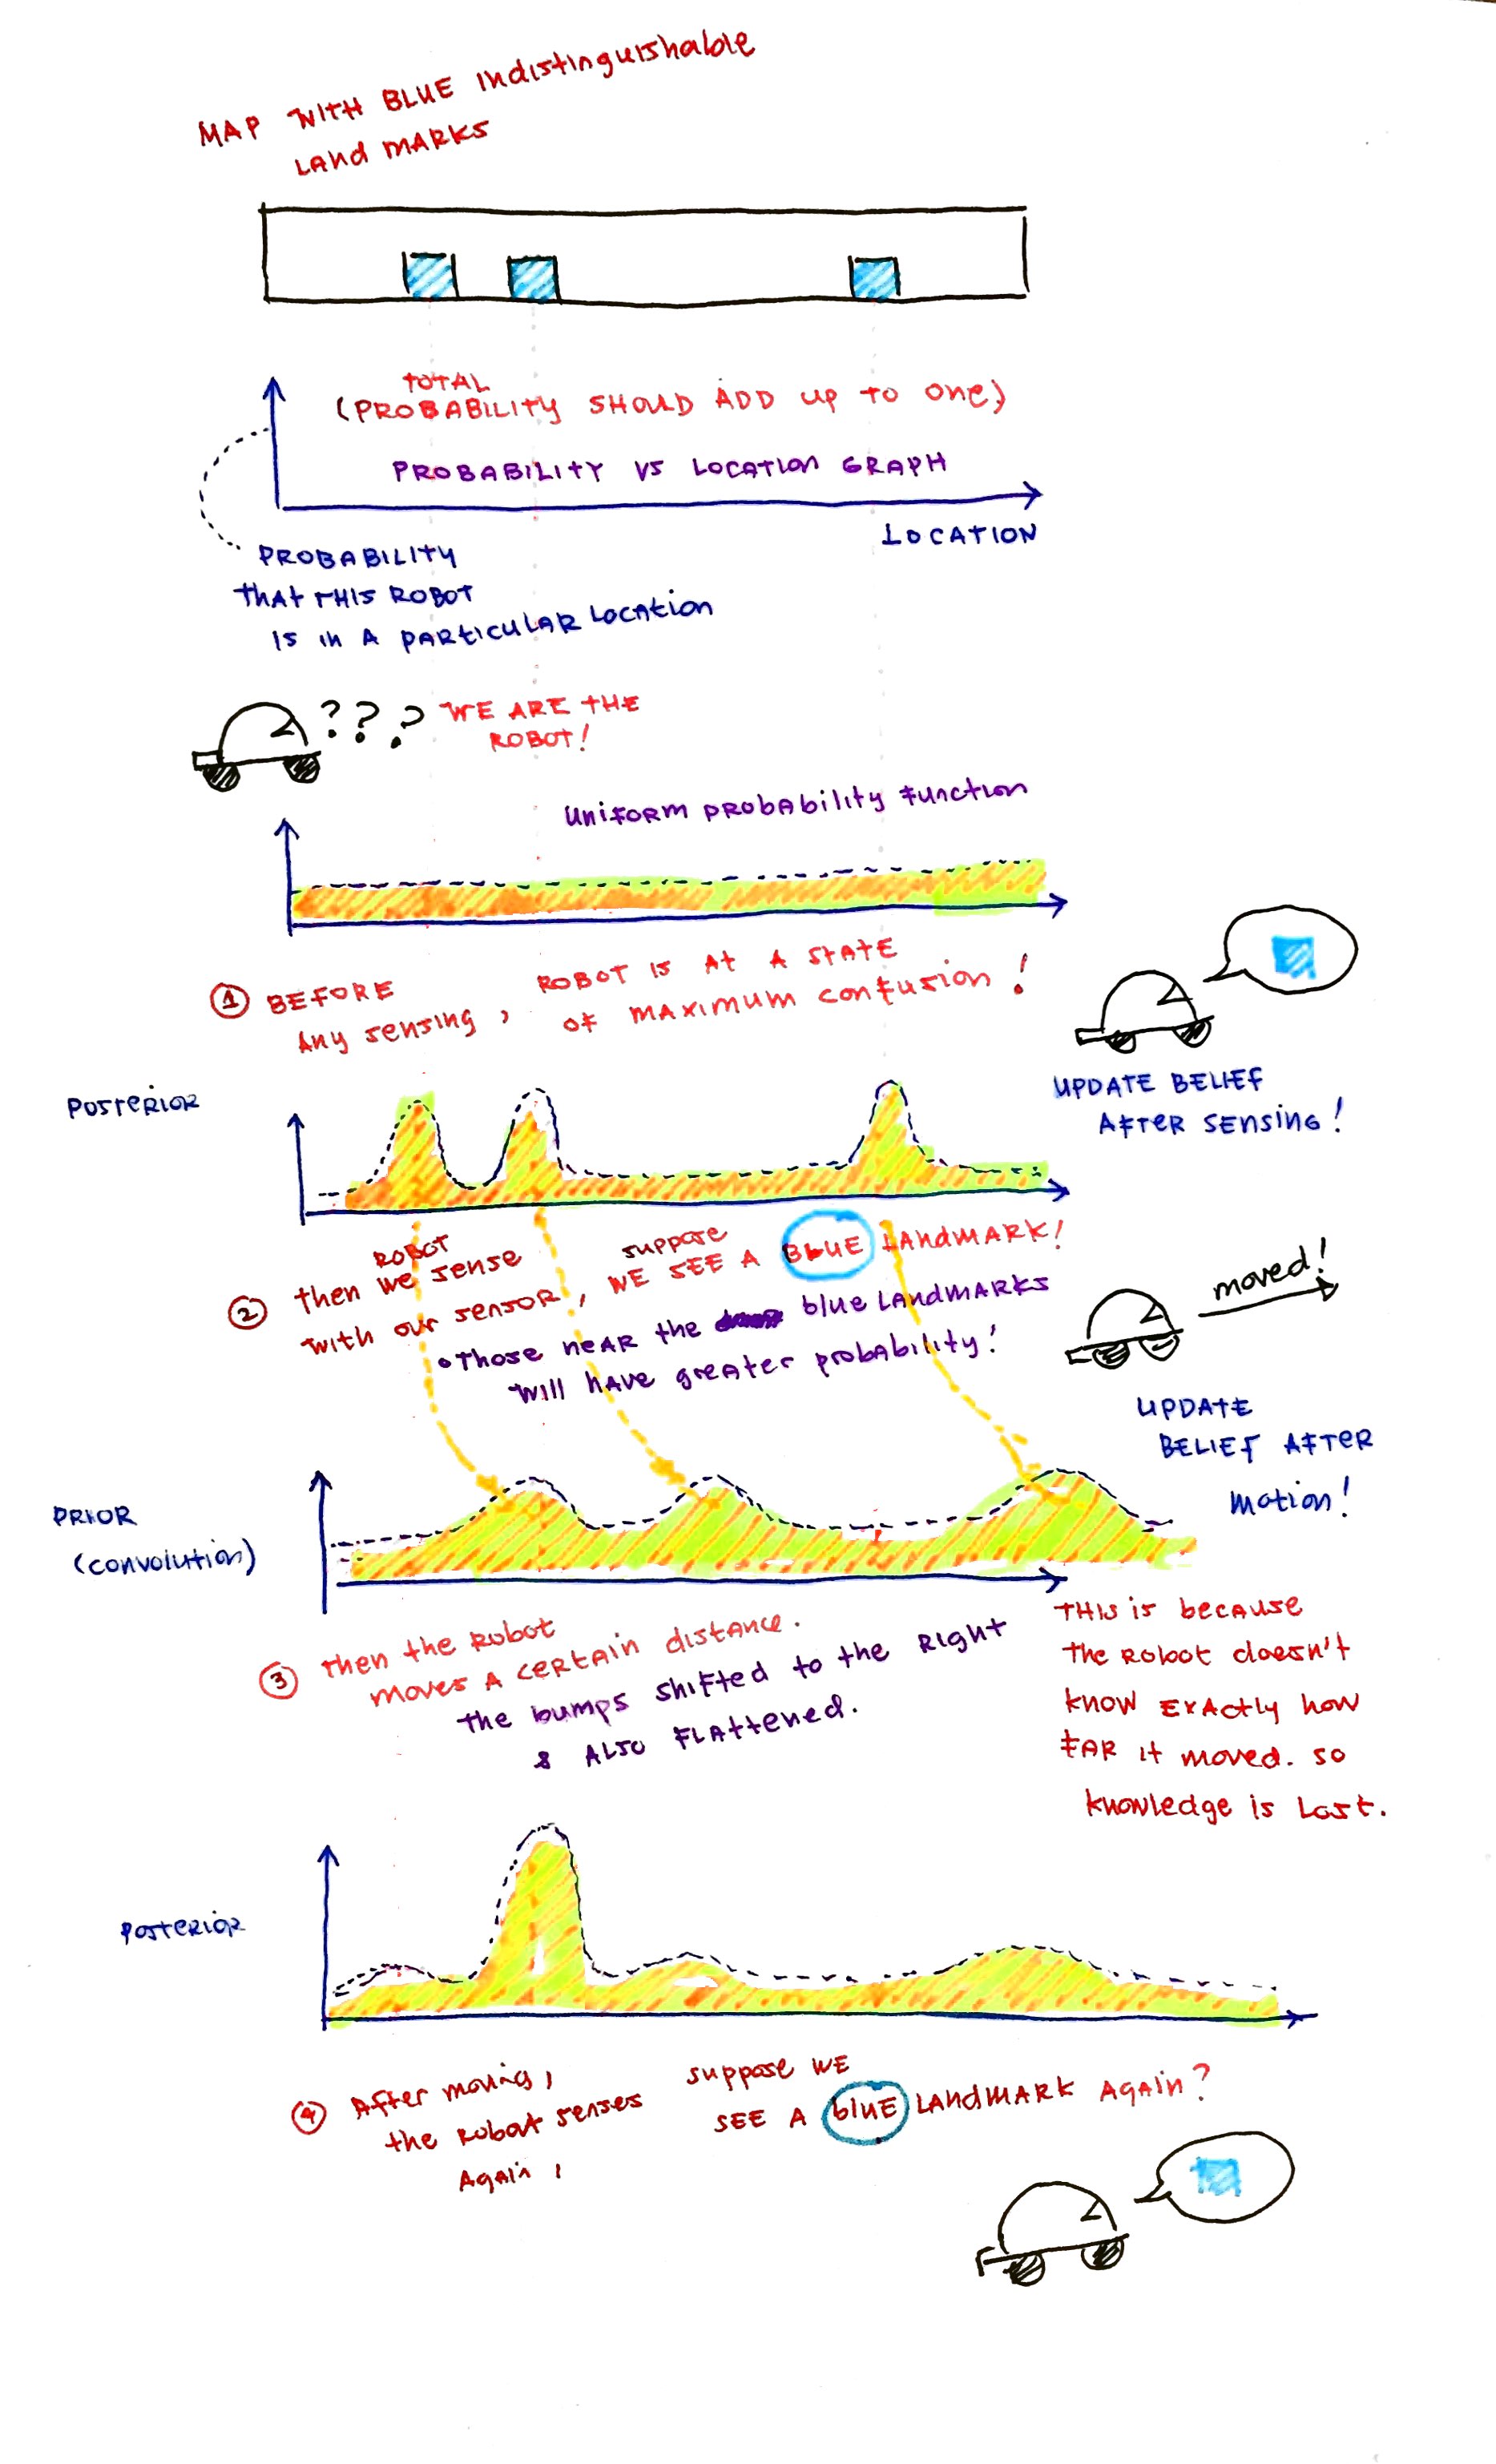 MAP WITH BLUE Indistinguishable
Land MARKS
TOTAL
(PROBABILITY SHOULD ADD up to one)
PROBABILITY VS LOCATION GRAPH
LOCATION
PROBABILITY
that this ROBOT
is in A particular Location
??? WE ARE THE
ROBOT!
Uniform probability function
① BEFORE
Any sensing, ROBOT IS At A STATE
of MAXIMUM confusion!
UPDATE BELIEF
AFTER SENSING!
POSTERIOR
ROBOT
② then we sense
with our sensor, suppose
WE SEE A BLUE LANDMARK!
• Those near the blue LANDMARKS
will have greater probability!
moved!
UPDATE
BELIEF AFTER
motion!
PRIOR
(convolution)
③ then the Robot
moves A certain distance.
the bumps shifted to the Right
& ALSO FLAttened.
THIS is because
the Robot doesn't
know EXActly how
FAR it moved. so
knowledge is Lost.
Posterior
④ After moving,
the Robot senses
Again,
suppose WE
SEE A blUE LANDMARK AGAIN?